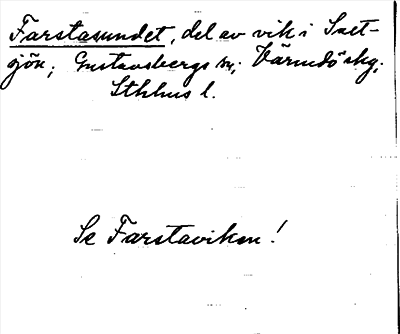 Farstasundet, del av vik i Salt-
sjön; Gustavsbergs sn; Värmdö skg;
Sthlms l.
Se Farstaviken!